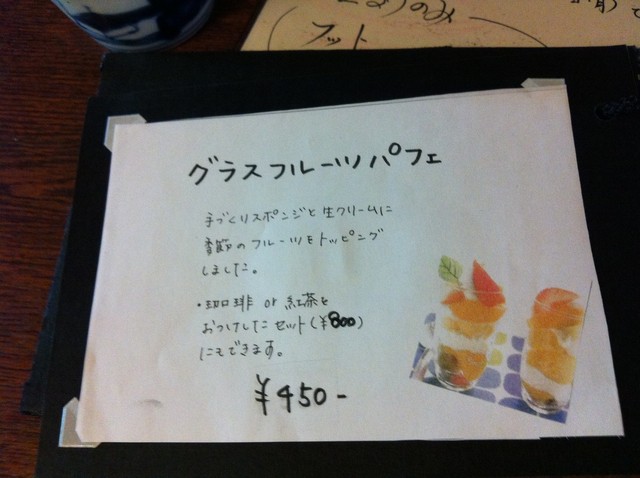 フット
グラスフルーツパフェ
手づくりスポンジと生クリームに
季節のフルーツをトッピング
しました。
・珈琲 or 紅茶を
おつけしたセット(¥800)
にもできます。
¥450-